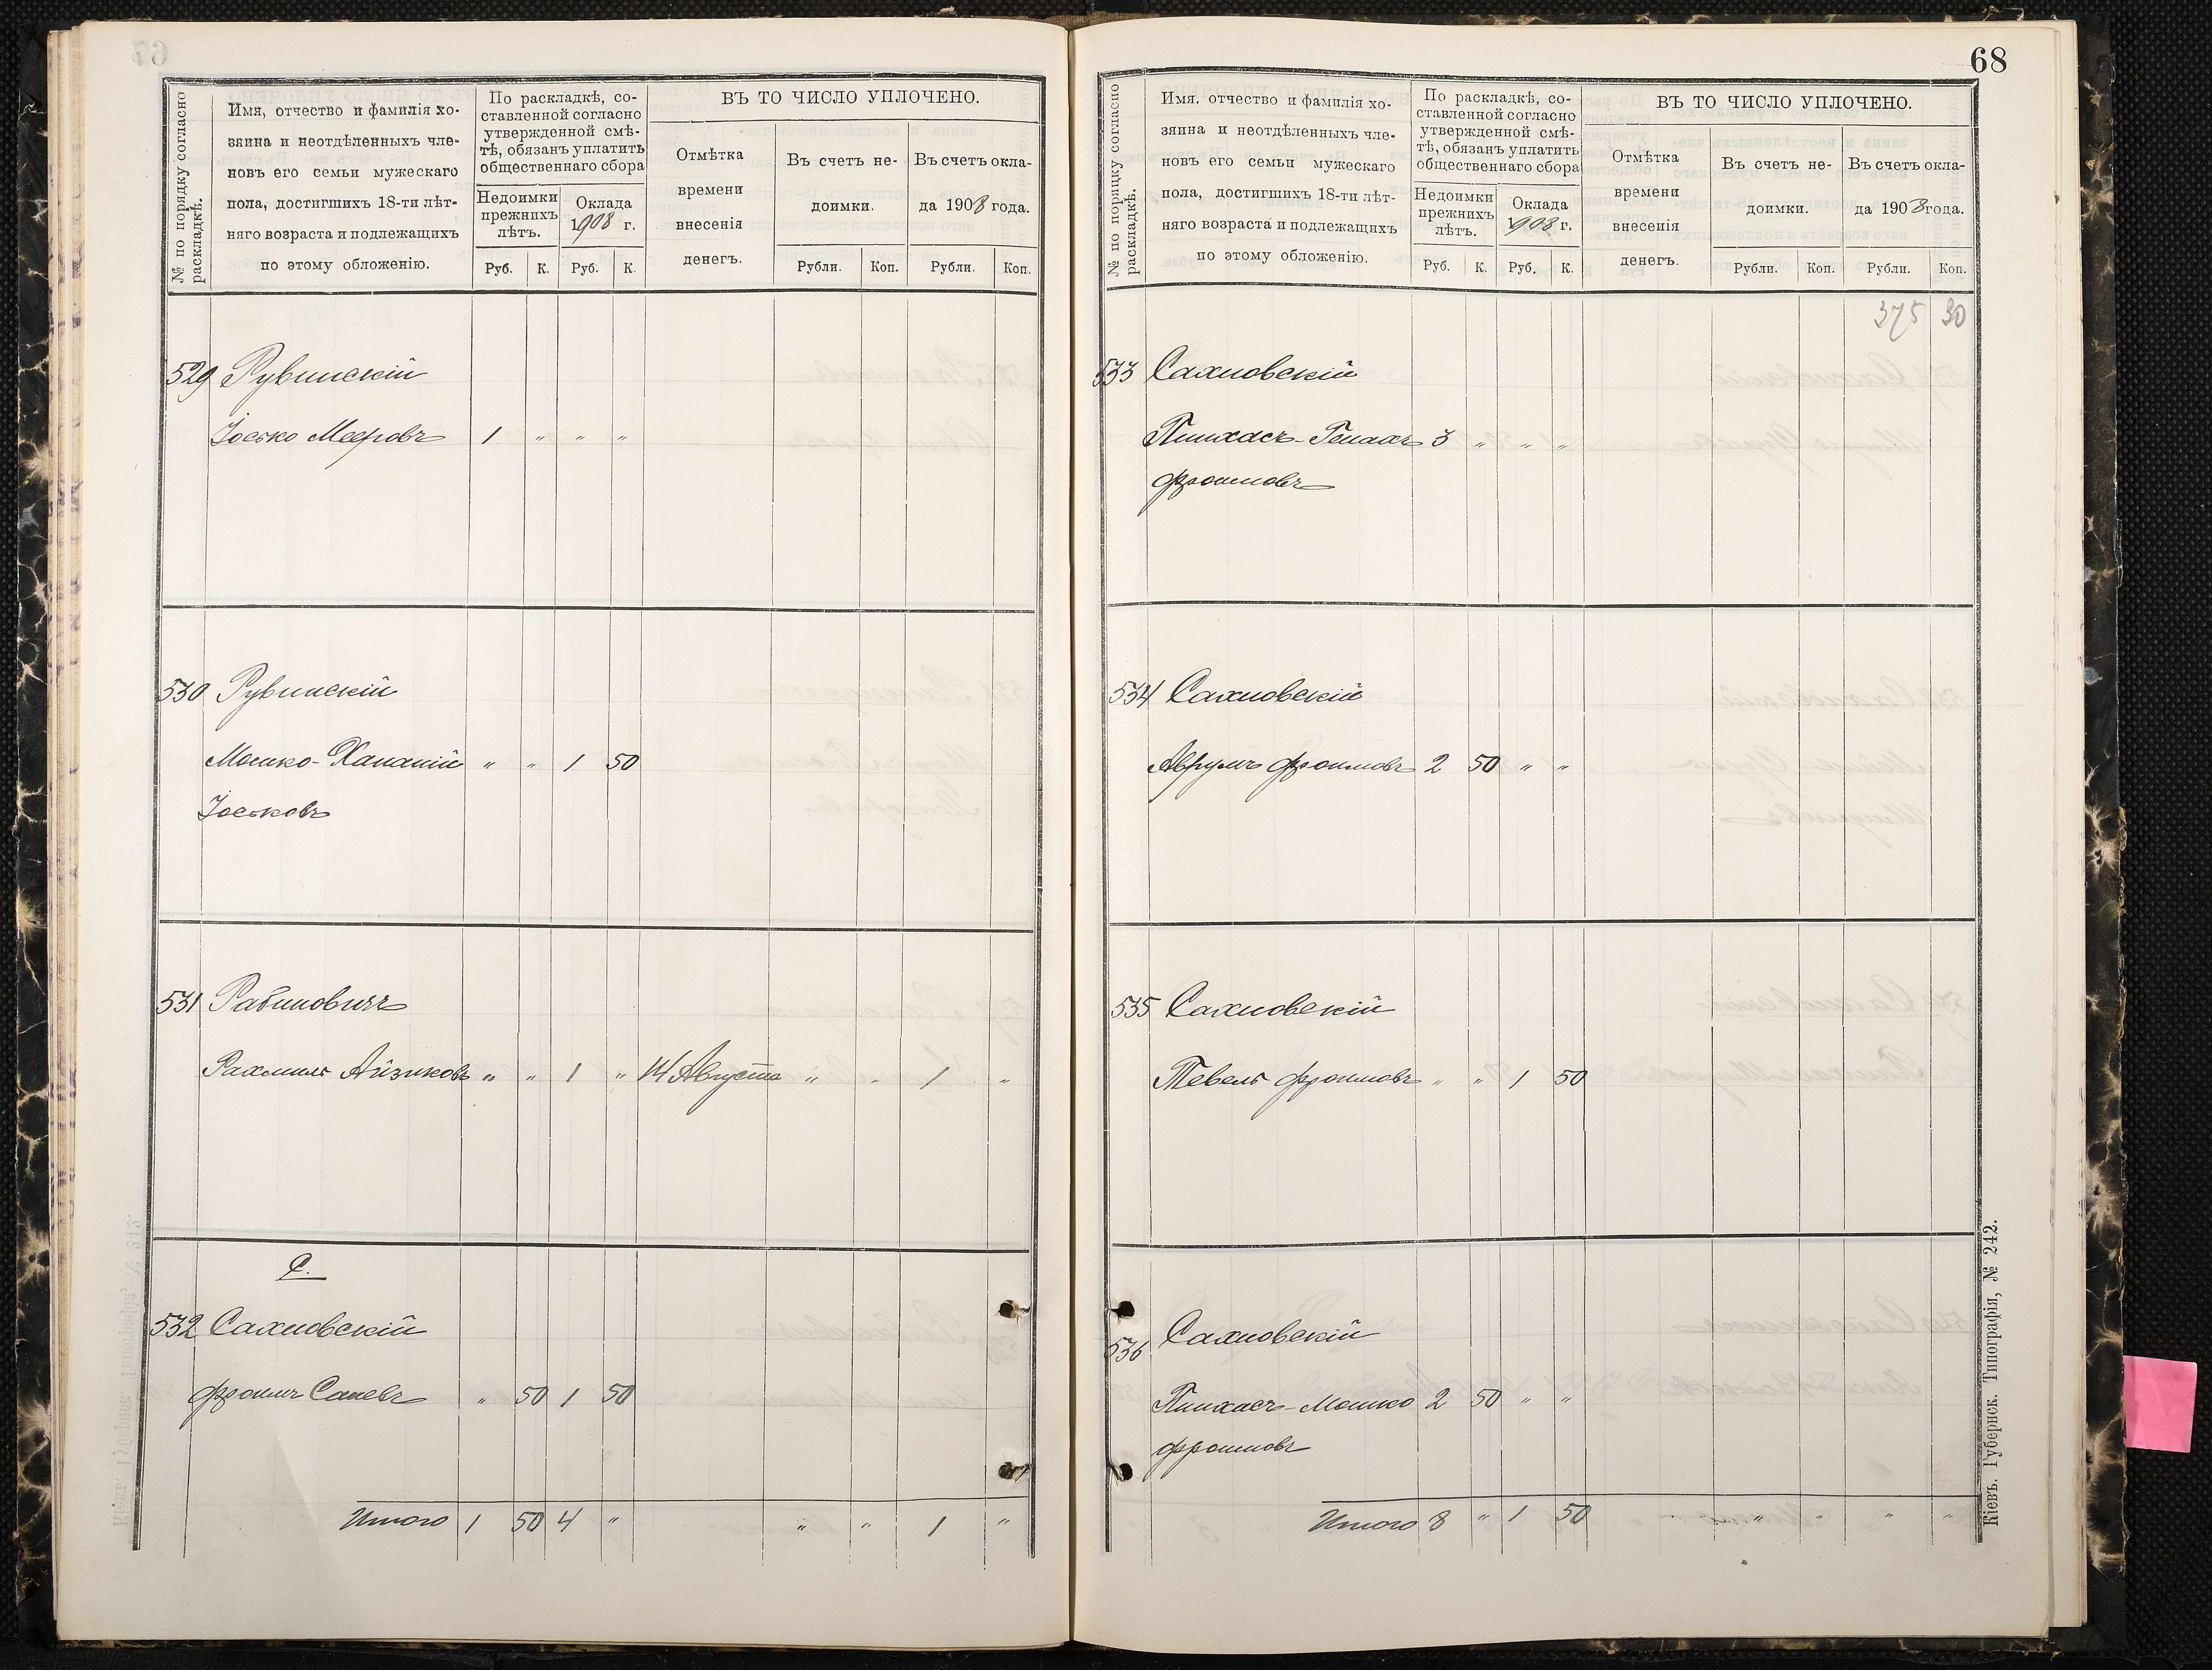 № по порядку согласно
раскладкѣ.
Имя, отчество и фамилія хо-
зяина и неотдѣленныхъ чле-
новъ его семьи мужескаго
пола, достигшихъ 18-ти лѣт-
няго возраста и подлежащихъ
по этому обложенію.
По раскладкѣ, со-
ставленной согласно
утвержденной смѣ-
тѣ, обязанъ уплатить
общественнаго сбора
Недоимки
прежнихъ
лѣтъ.
Оклада
1908 г.
Руб. К. Руб. К.
ВЪ ТО ЧИСЛО УПЛОЧЕНО.
Отмѣтка
времени
внесенія
денегъ.
Въ счетъ не-
доимки.
Въ счетъ окла-
да 1908 года.
Рубли. Коп. Рубли. Коп.
529 Рувинскій
Іосько Мееровъ 1 " " "
530 Рувинскій
Мошко-Хананій " " 1 50
Іоськовъ
531 Рабиновичъ
Рахмиль Айзиковъ " " 1 " 14 Августа " " 1 "
С.
532 Сахновскій
Фроимъ Саневъ " 50 1 50
Итого 1 50 4 " " " 1 "
68
№ по порядку согласно
раскладкѣ.
Имя. отчество и фамилія хо-
зяина и неотдѣленныхъ чле-
новъ его семьи мужескаго
пола, достигшихъ 18-ти лѣт-
няго возраста и подлежащихъ
по этому обложенію.
По раскладкѣ, со-
ставленной согласно
утвержденной смѣ-
тѣ, обязанъ уплатить
общественнаго сбора
Недоимки
прежнихъ
лѣтъ.
Оклада
1908 г.
Руб. К. Руб. К.
ВЪ ТО ЧИСЛО УПЛОЧЕНО.
Отмѣтка
времени
внесенія
денегъ.
Въ счетъ не-
доимки.
Въ счетъ окла-
да 1908 года.
Рубли. Коп. Рубли. Коп.
375 30
533 Сахновскій
Пинхасъ-Генахъ 3 " " "
Фроимовъ
534 Сахновскій
Аврумъ Фроимовъ 2 50 " "
535 Сахновскій
Тевель Фроимовъ " " 1 50
536 Сахновскій
Пинхасъ-Мошко 2 50 " "
Фроимовъ
Итого 8 " 1 50 " " " "
Кіевъ. Губернск. Типографія, № 242.